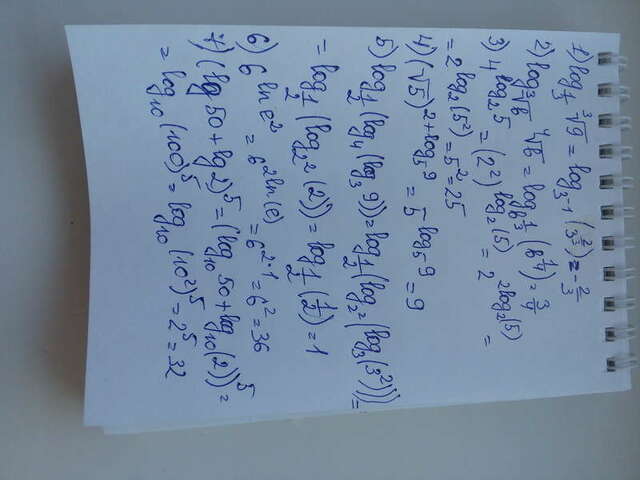 1) log_{1/3} ∛9 = log_{3^{-1}} (3^{2/3}) = -2/3
2) log_{∛b} ∜b = log_{b^{1/3}} (b^{1/4}) = 3/4
3) 4^{log_2 5} = (2^2)^{log_2(5)} = 2^{2log_2(5)} =
= 2^{log_2(5^2)} = 5^2 = 25
4) (√5)^{2+log_5 9} = 5^{log_5 9} = 9
5) log_{1/2} (log_4 (log_3 9)) = log_{1/2} (log_{2^2} (log_3 (3^2))) =
= log_{1/2} (log_{2^2} (2)) = log_{1/2} (1/2) = 1
6) 6^{ln e^2} = 6^{2ln(e)} = 6^{2·1} = 6^2 = 36
7) (lg 50 + lg 2)^5 = (log_{10} 50 + log_{10} (2))^5 =
= log_{10} (100)^5 = log_{10} (10^2)^5 = 2^5 = 32